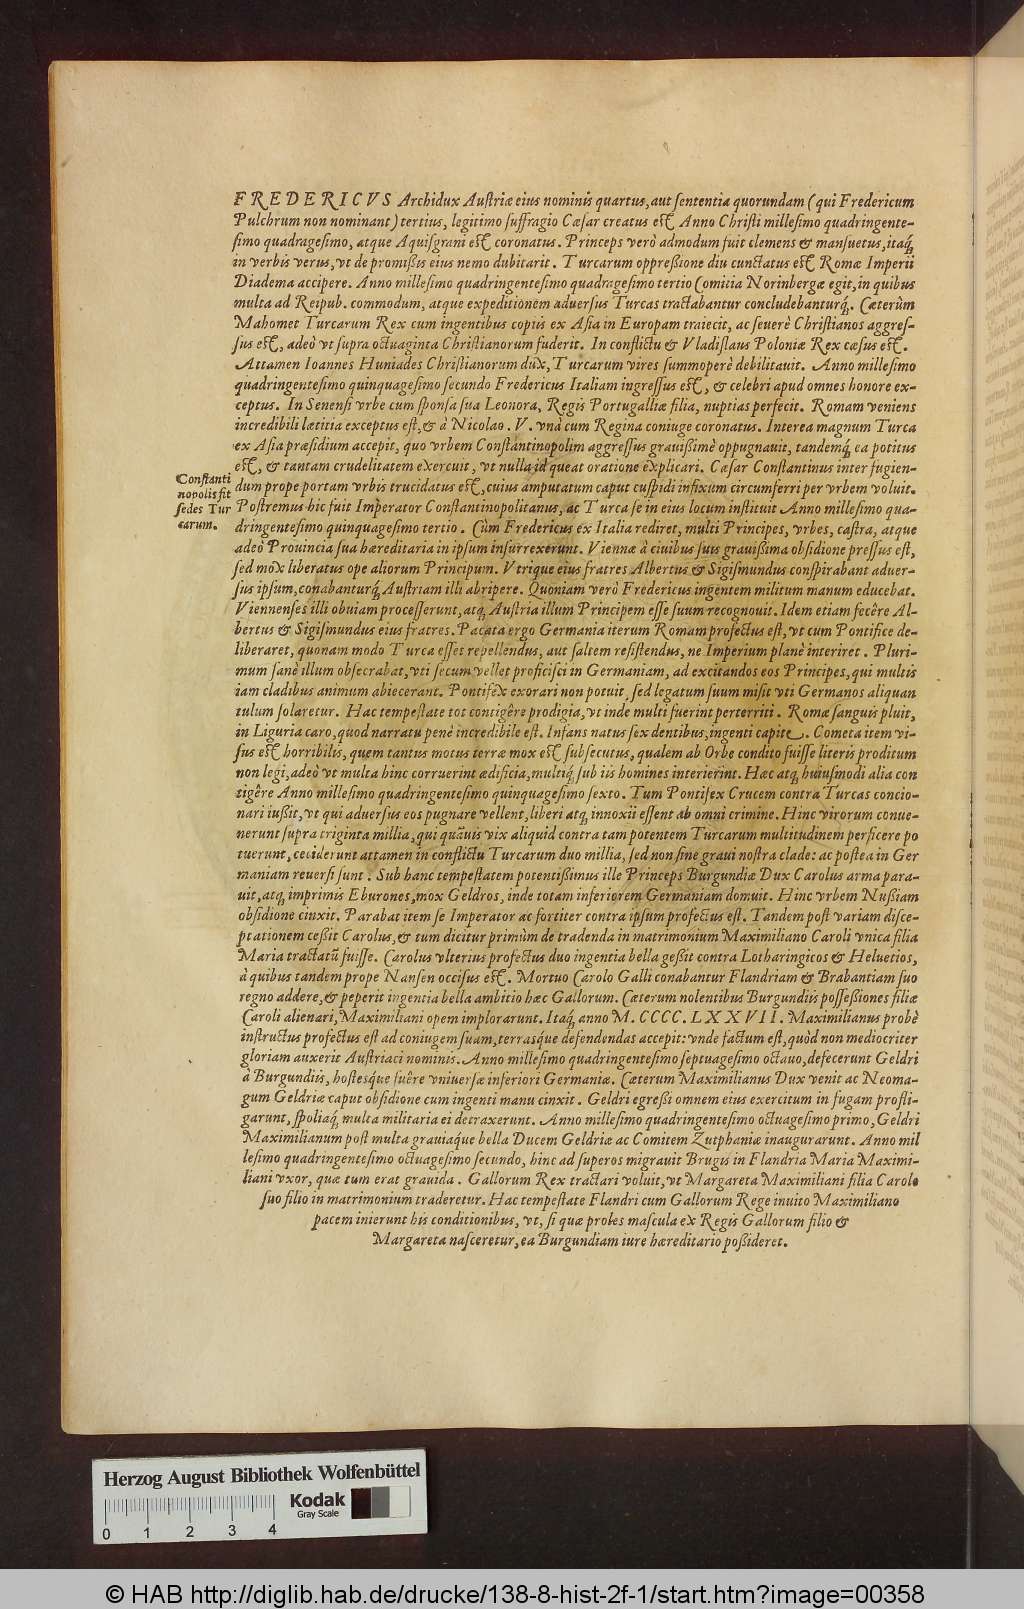 FREDERICVS Archidux Auſtriæ eius nominis quartus, aut ſententia quorundam (qui Fredericum
Pulchrum non nominant) tertius, legitimo ſuffragio Cæſar creatus eſt Anno Chriſti milleſimo quadringente-
ſimo quadrageſimo, atque Aquiſgrani eſt coronatus. Princeps verò admodum fuit clemens & manſuetus, itaq́
in verbis verus, vt de promißis eius nemo dubitarit. Turcarum oppreßione diu cunctatus eſt Romæ Imperii
Diadema accipere. Anno milleſimo quadringenteſimo quadrageſimo tertio Comitia Norinbergæ egit, in quibus
multa ad Reipub. commodum, atque expeditionem aduerſus Turcas tractabantur concludebanturq́. Cæterûm
Mahomet Turcarum Rex cum ingentibus copiis ex Aſia in Europam traiecit, ac ſeuerè Chriſtianos aggreſ-
ſus eſt, adeò vt ſupra octuaginta Chriſtianorum fuderit. In conflictu & Vladiſlaus Poloniæ Rex cæſus eſt.
Attamen Ioannes Huniades Chriſtianorum dux, Turcarum vires ſummoperè debilitauit. Anno milleſimo
quadringenteſimo quinquageſimo ſecundo Fredericus Italiam ingreſſus eſt, & celebri apud omnes honore ex-
ceptus. In Senenſi vrbe cum ſponſa ſua Leonora, Regis Portugalliæ filia, nuptias perfecit. Romam veniens
incredibili lætitia exceptus eſt, & à Nicolao. V. vnà cum Regina coniuge coronatus. Interea magnum Turca
ex Aſia præſidium accepit, quo vrbem Conſtantinopolim aggreſſus grauißimè oppugnauit, tandemq́ ea potitus
eſt, & tantam crudelitatem exercuit, vt nulla id queat oratione explicari. Cæſar Conſtantinus inter fugien-
Conſtanti
nopolis fit
ſedes Tur
carum.
dum prope portam vrbis trucidatus eſt, cuius amputatum caput cuſpidi infixum circumferri per vrbem voluit.
Poſtremus hic fuit Imperator Conſtantinopolitanus, ac Turca ſe in eius locum inſtituit Anno milleſimo qua-
dringenteſimo quinquageſimo tertio. Cùm Fredericus ex Italia rediret, multi Principes, vrbes, caſtra, atque
adeò Prouincia ſua hæreditaria in ipſum inſurrexerunt. Viennæ à ciuibus ſuis grauißima obſidione preſſus eſt,
ſed mox liberatus ope aliorum Principum. Vtrique eius fratres Albertus & Sigiſmundus conſpirabant aduer-
ſus ipſum, conabanturq́ Auſtriam illi abripere. Quoniam verò Fredericus ingentem militum manum educebat.
Viennenſes illi obuiam proceſſerunt, atq́ Auſtria illum Principem eſſe ſuum recognouit. Idem etiam fecêre Al-
bertus & Sigiſmundus eius fratres. Pacata ergo Germania iterum Romam profectus eſt, vt cum Pontifice de-
liberaret, quonam modo Turca eſſet repellendus, aut ſaltem reſiſtendus, ne Imperium planè interiret. Pluri-
mum ſanè illum obſecrabat, vti ſecum vellet proficiſci in Germaniam, ad excitandos eos Principes, qui multis
iam cladibus animum abiecerant. Pontifex exorari non potuit, ſed legatum ſuum miſit vti Germanos aliquan
tulum ſolaretur. Hac tempeſtate tot contigêre prodigia, vt inde multi fuerint perterriti. Romæ ſanguis pluit,
in Liguria caro, quod narratu penè incredibile eſt. Infans natus ſex dentibus, ingenti capite. Cometa item vi-
ſus eſt horribilis, quem tantus motus terræ mox eſt ſubſecutus, qualem ab Orbe condito fuiſſe literis proditum
non legi, adeò vt multa hinc corruerint ædificia, multiq́ ſub iis homines interierint. Hæc atq́ huiuſmodi alia con
tigêre Anno milleſimo quadringenteſimo quinquageſimo ſexto. Tum Pontifex Crucem contra Turcas concio-
nari iußit, vt qui aduerſus eos pugnare vellent, liberi atq́ innoxii eſſent ab omni crimine. Hinc virorum conue-
nerunt ſupra triginta millia, qui quãuis vix aliquid contra tam potentem Turcarum multitudinem perficere po
tuerunt, ceciderunt attamen in conflictu Turcarum duo millia, ſed non ſine graui noſtra clade: ac poſtea in Ger
maniam reuerſi ſunt. Sub hanc tempeſtatem potentißimus ille Princeps Burgundiæ Dux Carolus arma para-
uit, atq́ imprimis Eburones, mox Geldros, inde totam inferiorem Germaniam domuit. Hinc vrbem Nußiam
obſidione cinxit. Parabat item ſe Imperator ac fortiter contra ipſum profectus eſt. Tandem poſt variam diſce-
ptationem ceßit Carolus, & tum dicitur primùm de tradenda in matrimonium Maximiliano Caroli vnica filia
Maria tractatũ fuiſſe. Carolus vlterius profectus duo ingentia bella geßit contra Lotharingicos & Helueti­os,
à quibus tandem prope Nanſen occiſus eſt. Mortuo Carolo Galli conabantur Flandriam & Brabantiam ſuo
regno addere, & peperit ingentia bella ambitio hæc Gallorum. Cæterum nolentibus Burgundiis poſſeßiones filiæ
Caroli alienari, Maximiliani opem implorarunt. Itaq́ anno M. CCCC. LXXVII. Maximilianus probè
inſtructus profectus eſt ad coniugem ſuam, terraſque defendendas accepit: vnde factum eſt, quòd non mediocriter
gloriam auxerit Auſtriaci nominis. Anno milleſimo quadringenteſimo ſeptuageſimo octauo, defecerunt Geldri
à Burgundiis, hoſteſque fuêre vniuerſæ inferiori Germaniæ. Cæterum Maximilianus Dux venit ac Neoma-
gum Geldriæ caput obſidione cum ingenti manu cinxit. Geldri egreßi omnem eius exercitum in fugam profli-
garunt, ſpoliaq́ multa militaria ei detraxerunt. Anno milleſimo quadringenteſimo octuageſimo primo, Geldri
Maximilianum poſt multa grauiaque bella Ducem Geldriæ ac Comitem Zutphaniæ inaugurarunt. Anno mil
leſimo quadringenteſimo octuageſimo ſecundo, hinc ad ſuperos migrauit Brugis in Flandria Maria Maximi-
liani vxor, quæ tum erat grauida. Gallorum Rex tractari voluit, vt Margareta Maximiliani filia Carolo
ſuo filio in matrimonium traderetur. Hac tempeſtate Flandri cum Gallorum Rege inuito Maximiliano
pacem inierunt his conditionibus, vt, ſi quæ proles maſcula ex Regis Gallorum filio &
Margareta naſceretur, ea Burgundiam iure hæreditario poßideret.
Herzog August Bibliothek Wolfenbüttel
Kodak
Gray Scale
0 1 2 3 4
© HAB http://diglib.hab.de/drucke/138-8-hist-2f-1/start.htm?image=00358